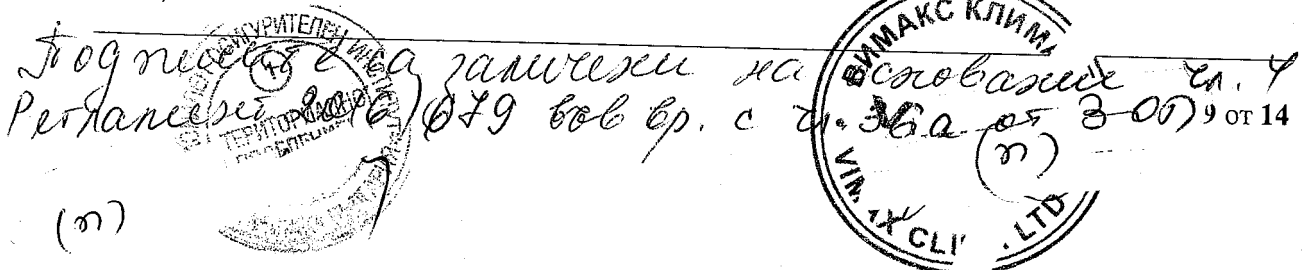 Подписите са заличени на основание чл. 4
Регламент 2016/679 във вр. с чл. 36а от ЗОП
9 от 14
(п)
(п)
ВИМАКС КЛИМА
VIMAX CLI . LTD
ОСИГУРИТЕЛЕН
ТЕРИТОРИАЛНО